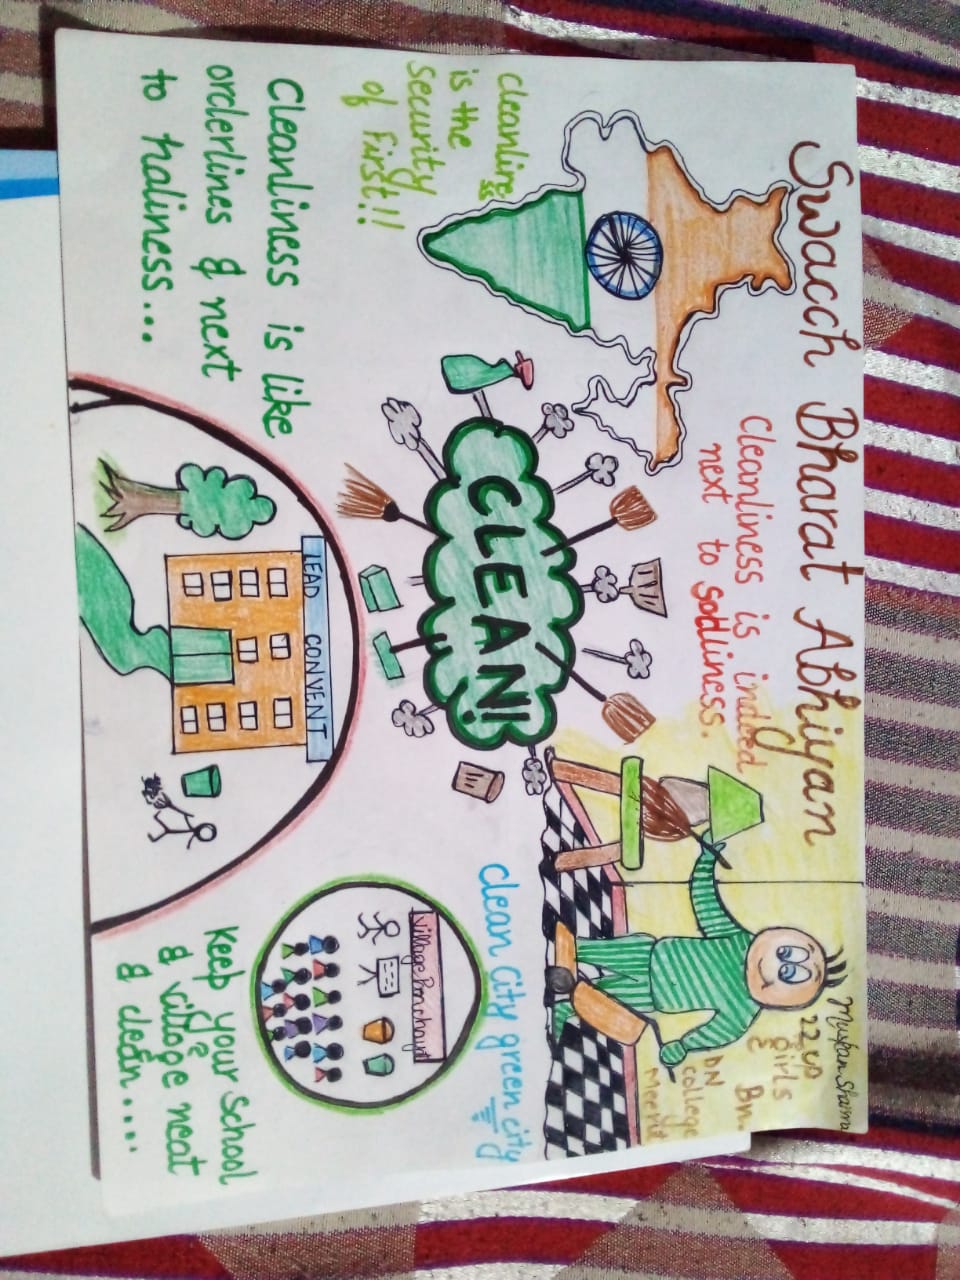 Swacch Bharat Abhiyan
Cleanliness is indeed
next to sodliness.
cleanline
ss
is the
security
of First!!
Cleanliness is like
orderlines & next
to haliness...
CLEAN!
LEAD CONVENT
Village Panchayat
clean city green city
Keep your school
& village neat
& clean....
Sharma
22 up
girls Bn.
DN
college
Meerut